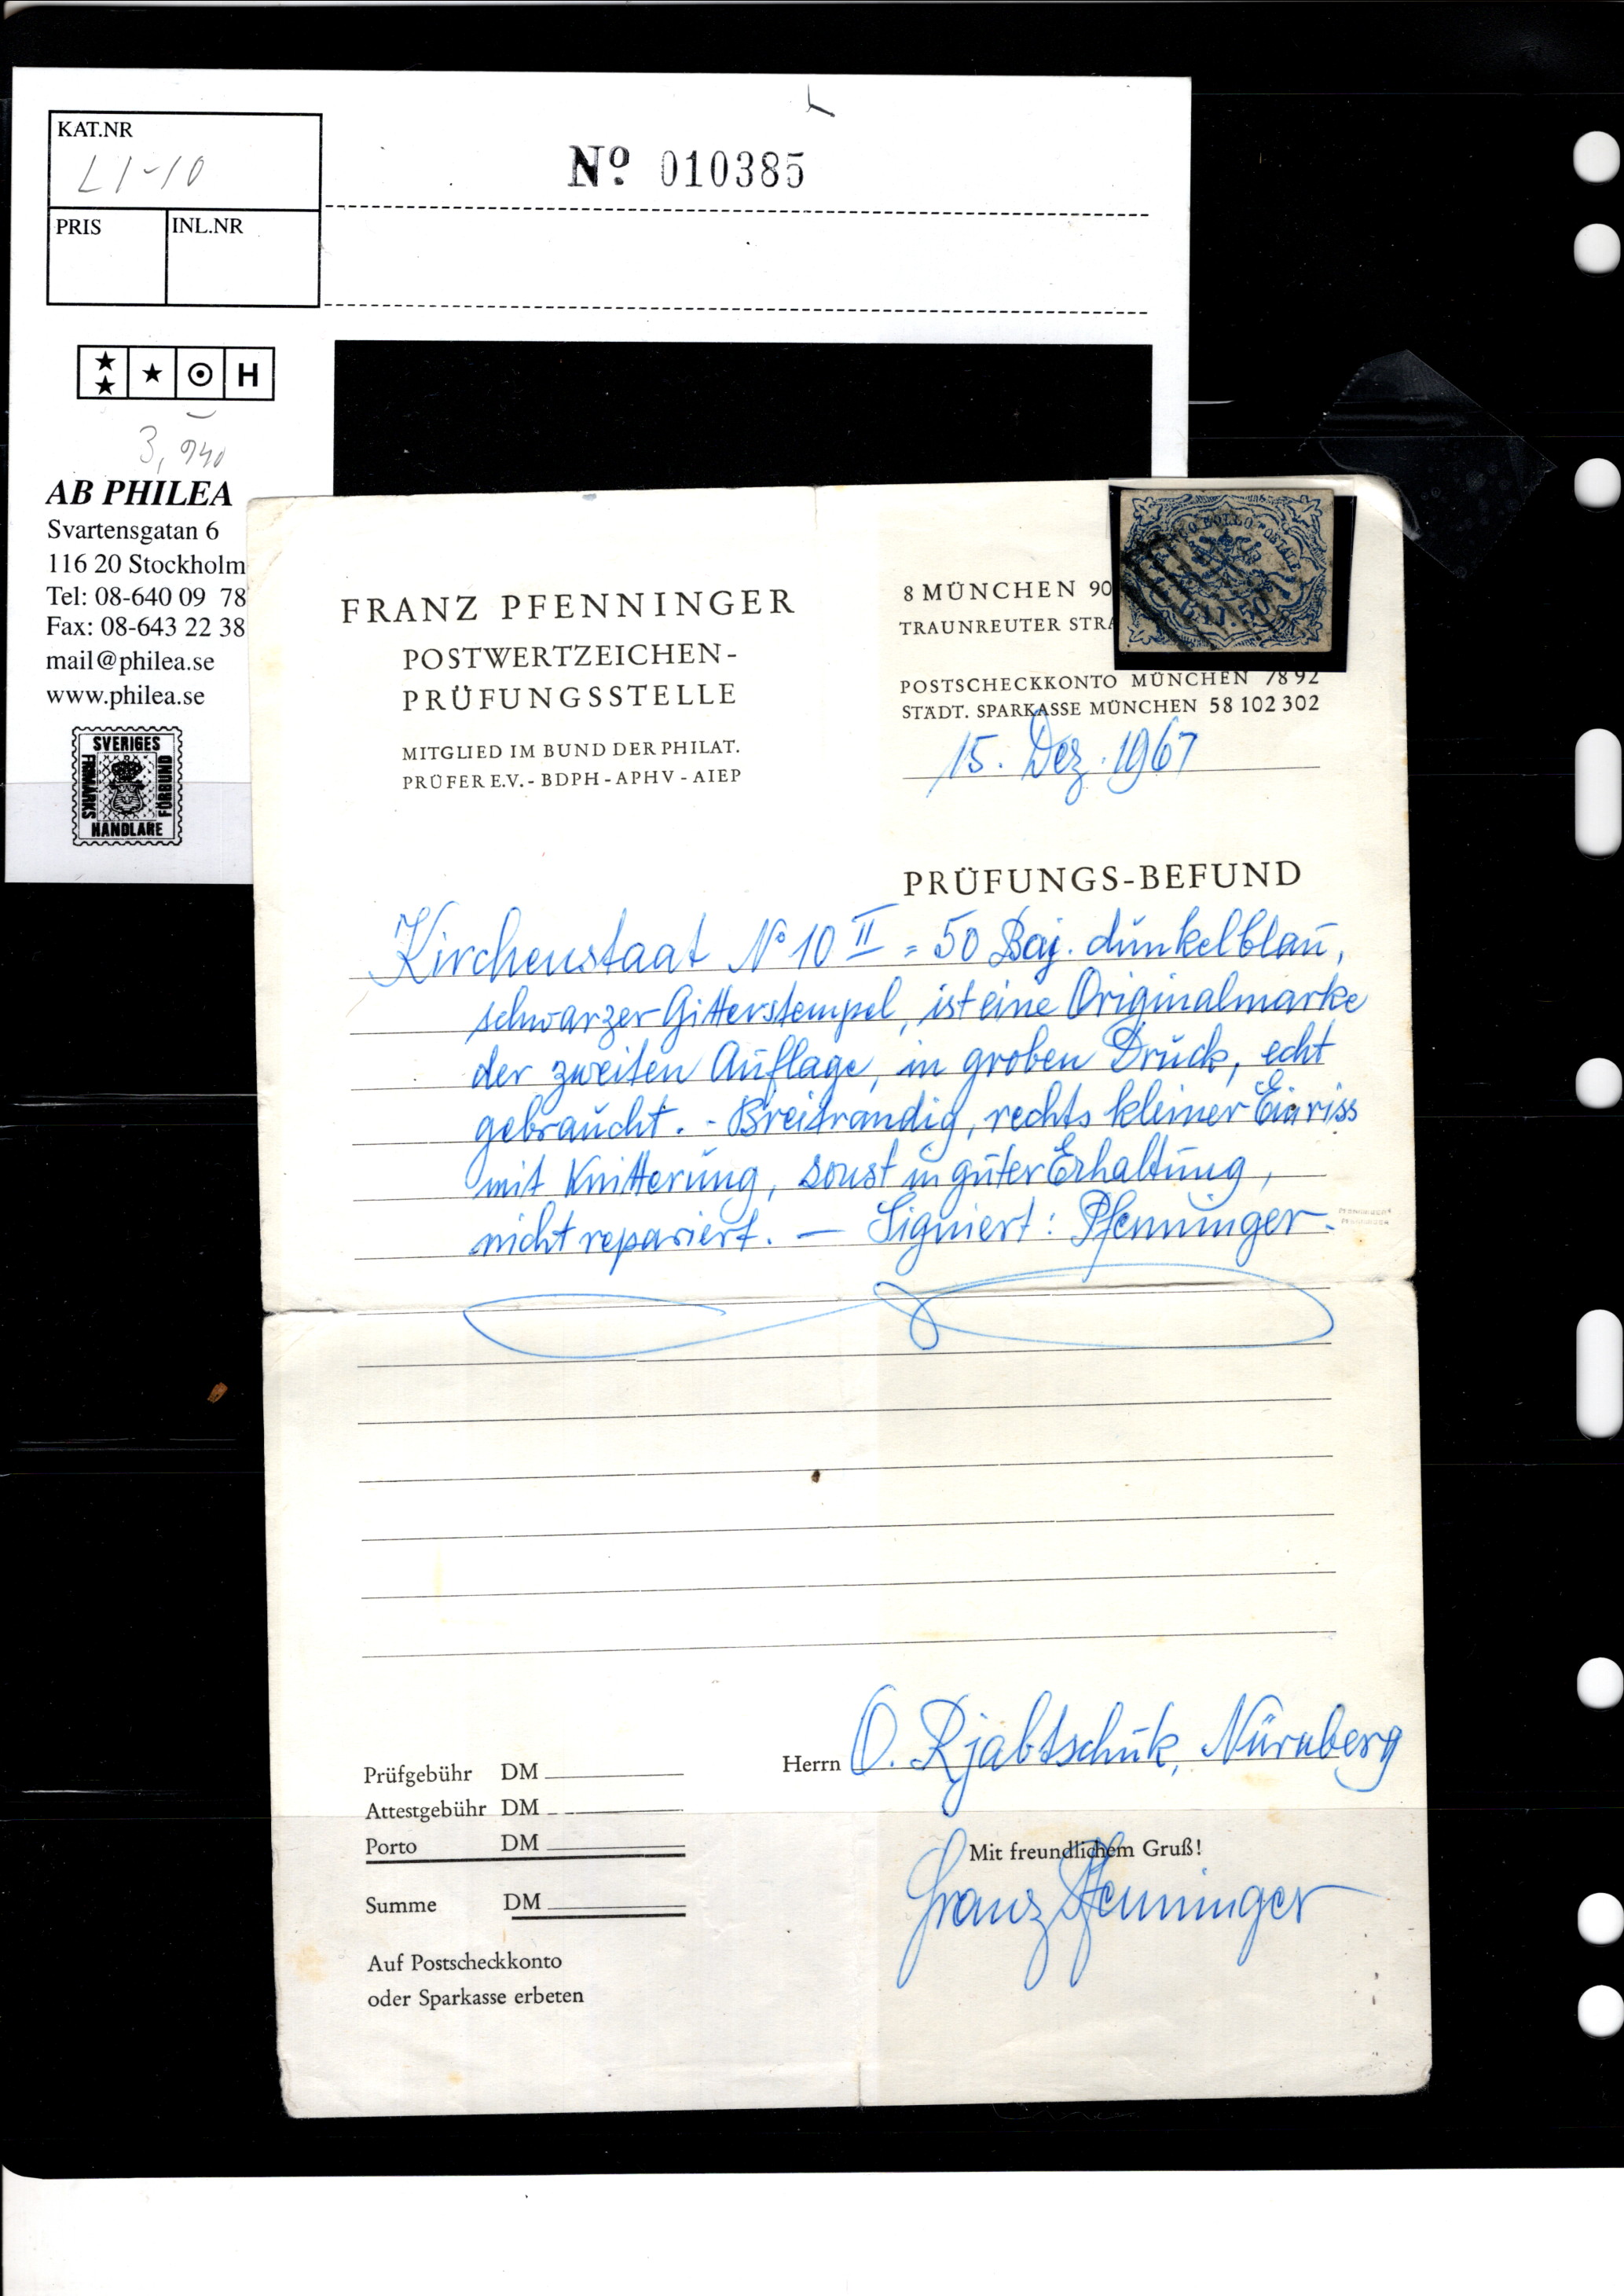 KAT.NR
L1-10
Nº 010385
PRIS
INL.NR
H
3,940
AB PHILEA
Svartensgatan 6
116 20 Stockholm
Tel: 08-640 09 78
Fax: 08-643 22 38
mail@philea.se
www.philea.se
SVERIGES
FRIMÄRKS
HANDLARE
FÖRBUND
FRANZ PFENNINGER
POSTWERTZEICHEN-
PRÜFUNGSSTELLE
MITGLIED IM BUND DER PHILAT.
PRÜFER E.V. - BDPH - APHV - AIEP
8 MÜNCHEN 90
TRAUNREUTER STRA
BOLLO POSTALE
50
POSTSCHECKKONTO MÜNCHEN 78 92
STÄDT. SPARKASSE MÜNCHEN 58 102 302
15. Dez. 1967
PRÜFUNGS-BEFUND
Kirchenstaat Nº 10 II = 50 Baj. dunkelblau,
schwarzer Gitterstempel, ist eine Originalmarke
der zweiten Auflage, in groben Druck, echt
gebraucht. - Breitrandig, rechts kleiner Einriss
mit Knitterung, sonst in guter Erhaltung,
nicht repariert. — Signiert: Pfenninger.
PFENNINGER
PFENNINGER
Herrn O. Rjabtschuk, Nürnberg
Prüfgebühr DM
Attestgebühr DM
Porto DM
Summe DM
Auf Postscheckkonto
oder Sparkasse erbeten
Mit freundlichem Gruß!
Franz Pfenninger